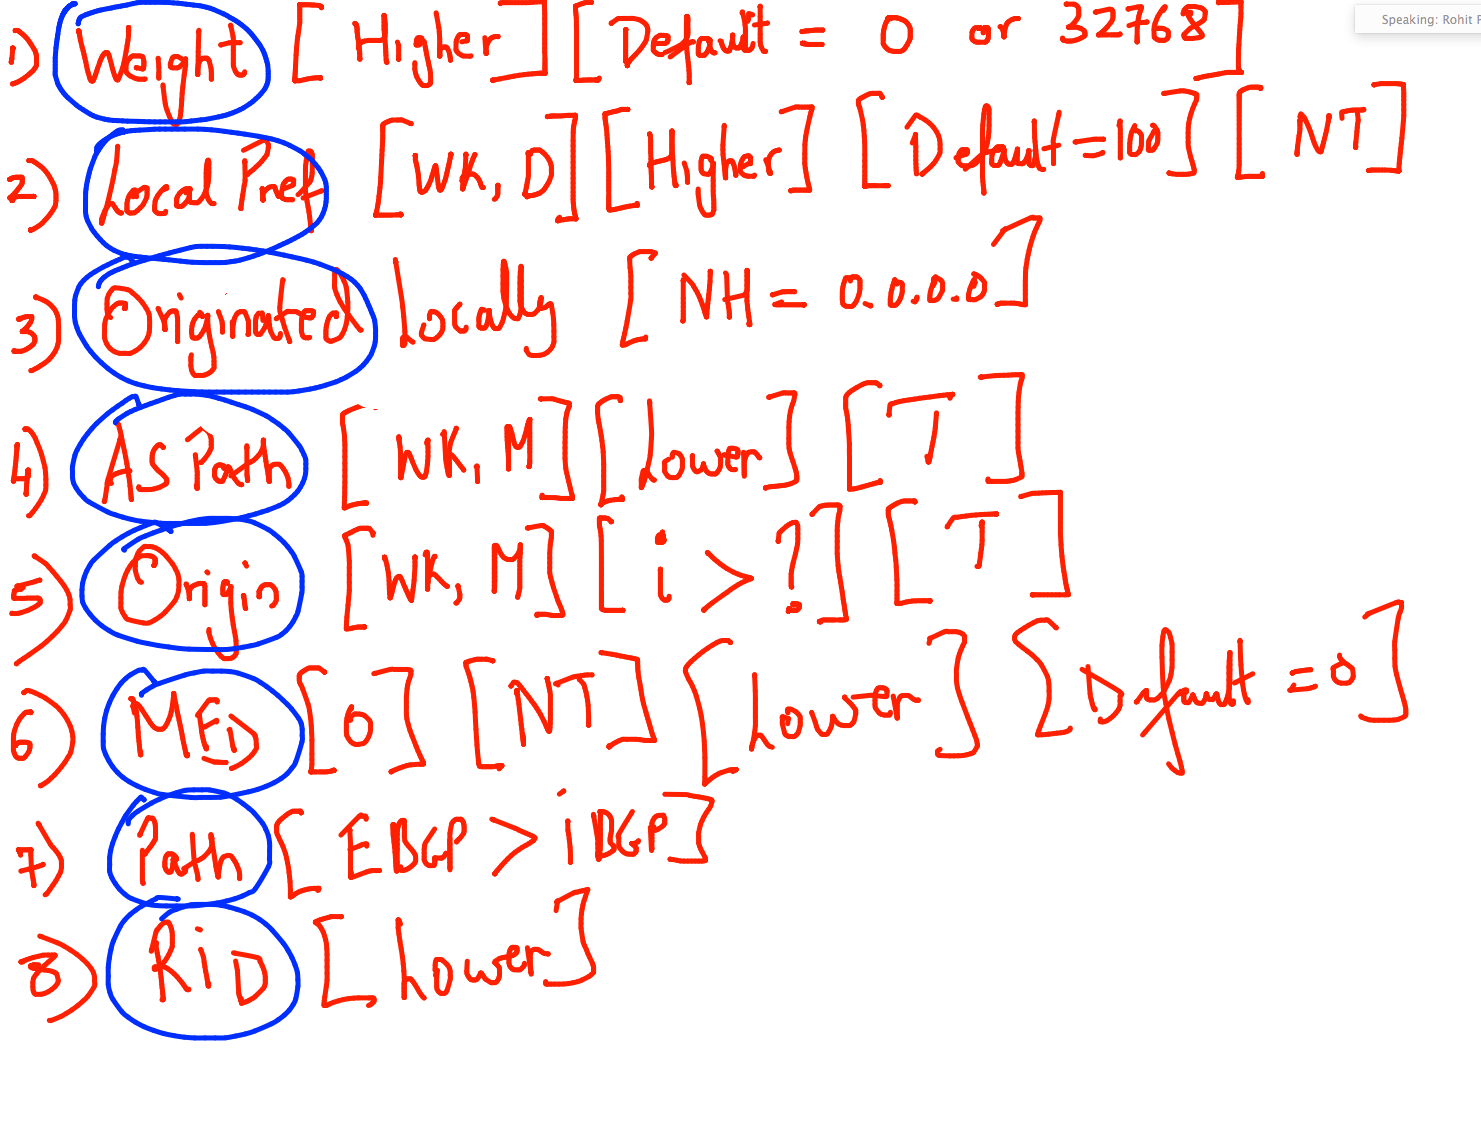 Speaking: Rohit
1) Weight [Higher] [Default = 0 or 32768]
2) Local Pref [WK, D] [Higher] [Default = 100] [NT]
3) Originated Locally [NH = 0.0.0.0]
4) AS Path [WK, M] [Lower] [T]
5) Origin [WK, M] [i > ?] [T]
6) MED [O] [NT] [Lower] [Default = 0]
7) Path [EBGP > iBGP]
8) RiD [Lower]